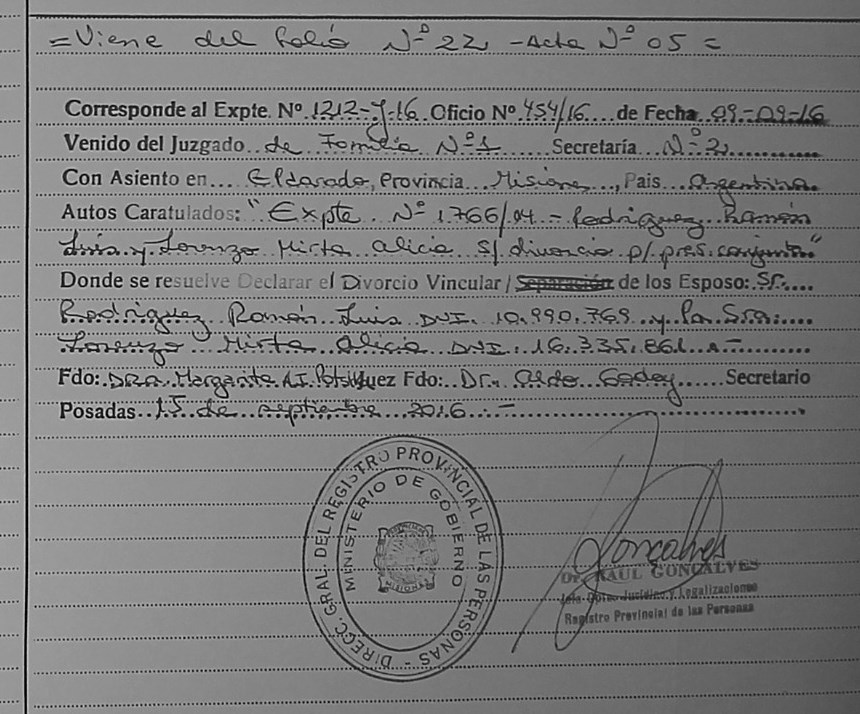 = Viene del folio Nº 22, - Acta Nº 05 =
Corresponde al Expte. Nº 1212-J-16 Oficio Nº 454/16 de Fecha 09-09-16
Venido del Juzgado de Familia Nº 1 Secretaría Nº 2
Con Asiento en Eldorado, Provincia Misiones, Pais Argentina.
Autos Caratulados: "Expte Nº 1.766/04 - Rodriguez Ramón
Luis y Lorenzo Mirta Alicia s/ divorcio p/ pres. conjunta"
Donde se resuelve Declarar el Divorcio Vincular / Separación de los Esposo: Sr.
Rodriguez Ramón Luis DNI. 10.990.769 y la Sra.
Lorenzo Mirta Alicia DNI. 16.335.861. -
Fdo: DRA. Margarita Juez Fdo: Dr. Aldo Godoy Secretario
Posadas 15 de septiembre 2016. -
DIRECC. GRAL. DEL REGISTRO PROVINCIAL DE LAS PERSONAS -
MINISTERIO DE GOBIERNO
MISIONES
Gonçalves
Dr. RAUL GONCALVES
Jefe Dpto. Jurídico y Legalizaciones
Registro Provincial de las Personas